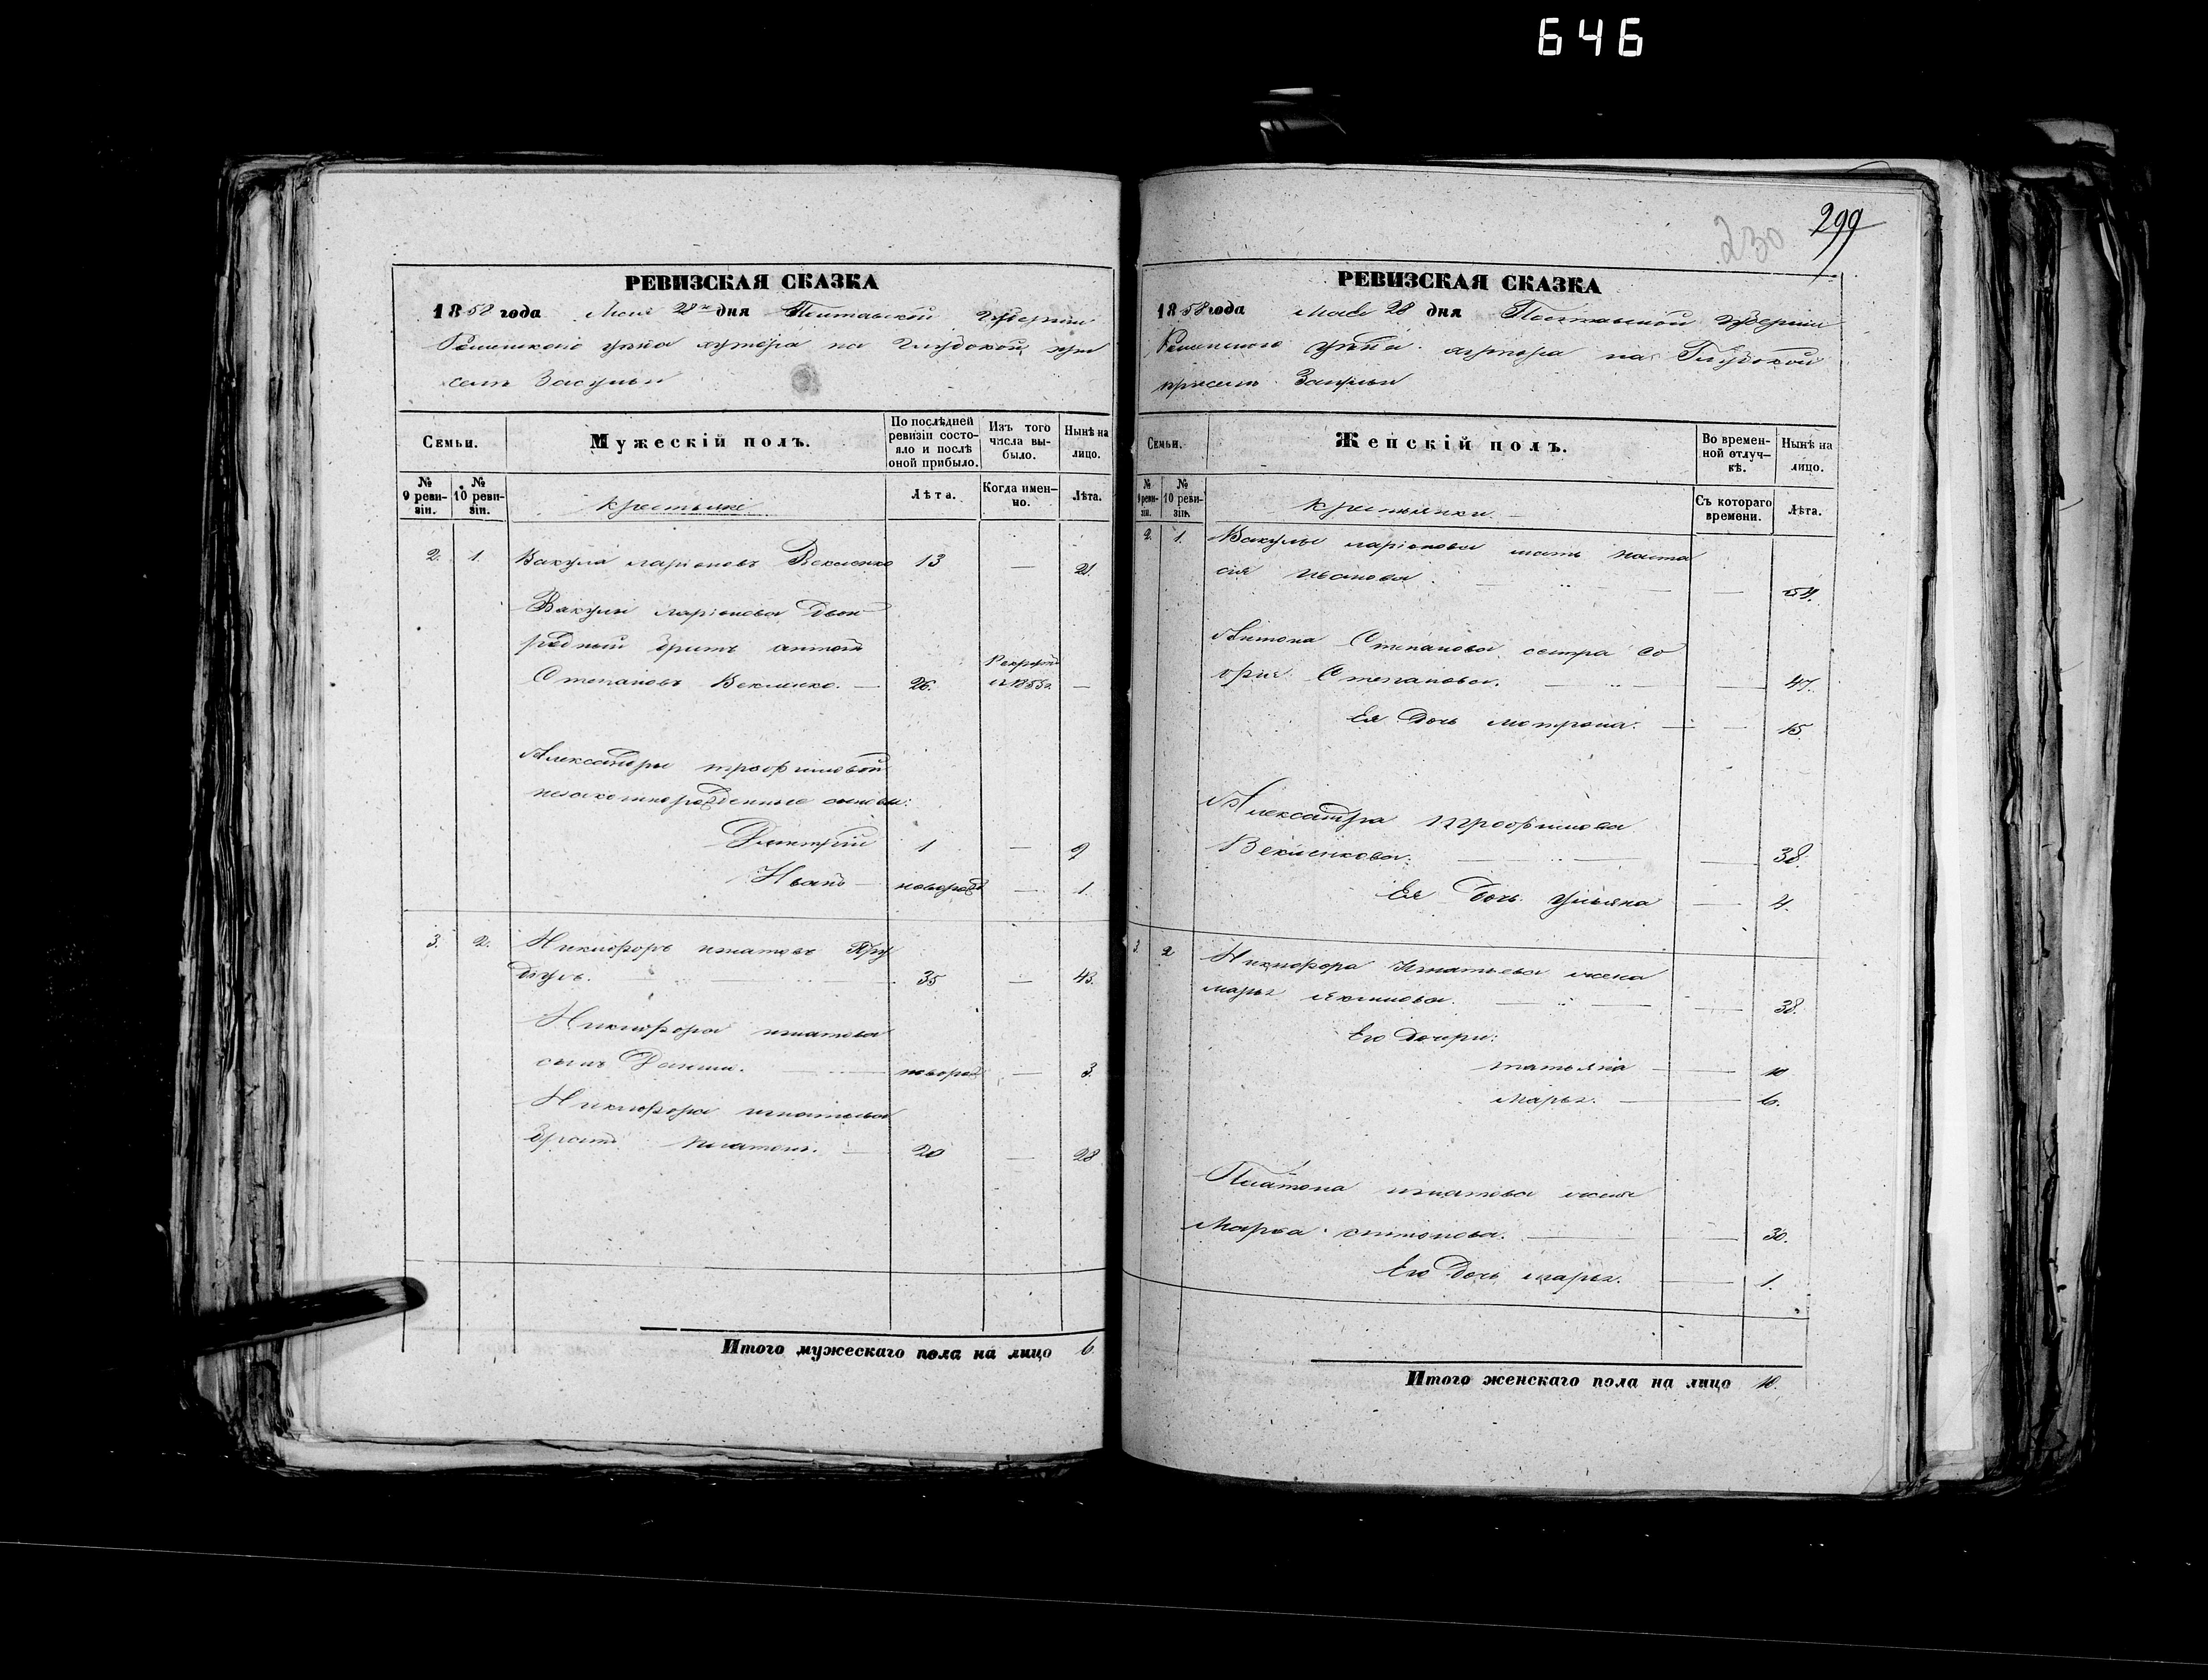 646
299
230
РЕВИЗСКАЯ СКАЗКА
1858 года Мая 28 дня Полтавской Губернии
Роменского уезда хутора на Глубокой при
селе Засульи
Семьи.
Мужескій полъ.
По послѣдней ревизіи состояло и послѣ оной прибыло.
Изъ того числа выбыло.
Нынѣ на лицо.
№ 9 ревизіи.
№ 10 ревизіи.
Крестьяне
Лѣта.
Когда именно.
Лѣта.
2. 1. Вакула Ларіоновъ Векленко 13 — 21.
Вакулы Ларіонова двою
родный братъ Антонъ
Степановъ Векленко. — 26. Рекрутъ в 1855 г. —
Александры Трофимовой
незаконнорожденные сыновья:
Дмитрій 1 — 9
Иванъ — новорожд — 1.
3. 2. Никифоръ Игнатовъ
35 — 43.
Никифора Игнатова
сынъ Данило. — новорож — 3.
Никифора Игнатьева
братъ Платонъ. — 20 — 28
Итого мужескаго пола на лицо 6.
РЕВИЗСКАЯ СКАЗКА
1858 года Мая 28 дня Полтавской Губерніи
Роменского уезда хутора на Глубокой
при селе Засульи
Семьи.
Женскій полъ.
Во временной отлучкѣ.
Нынѣ на лицо.
№ 9 ревизіи.
№ 10 ревизіи.
Крестьянки.
Съ котораго времени.
Лѣта.
2. 1. Вакулы Ларіонова мать Наста
сия Иванова. — — 54.
Антона Степанова сестра Со
фия Степанова. — — 47.
Ея дочь Мотрона. — — 15.
Александра Трофимова
Векленкова. — — 38.
Ея дочь Ульяна — 4.
3. 2 Никифора Игнатьева жена
Марья Якимова. — — 38.
Его дочери:
Татьяна — 10
Марья. — 6.
Платона Игнатова жена
Марья Антонова. — 30.
Его дочь Марья. — 1.
Итого женскаго пола на лицо 10.